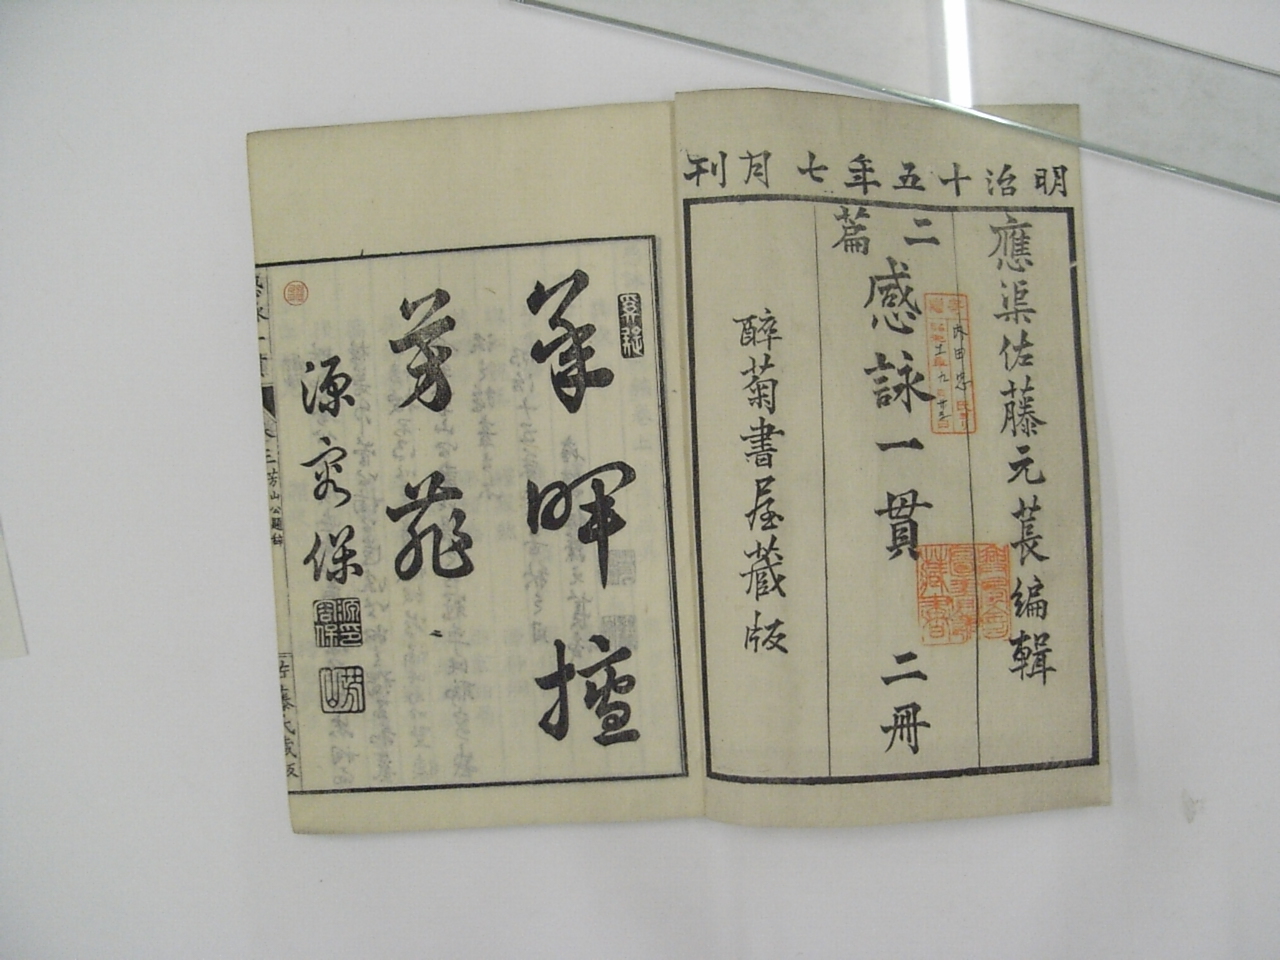 明治十五年七月刊
應渠佐藤元萇編輯
二篇
感詠一貫 二冊
醉菊書屋蔵版
筆暉擅
芳菲
源容保